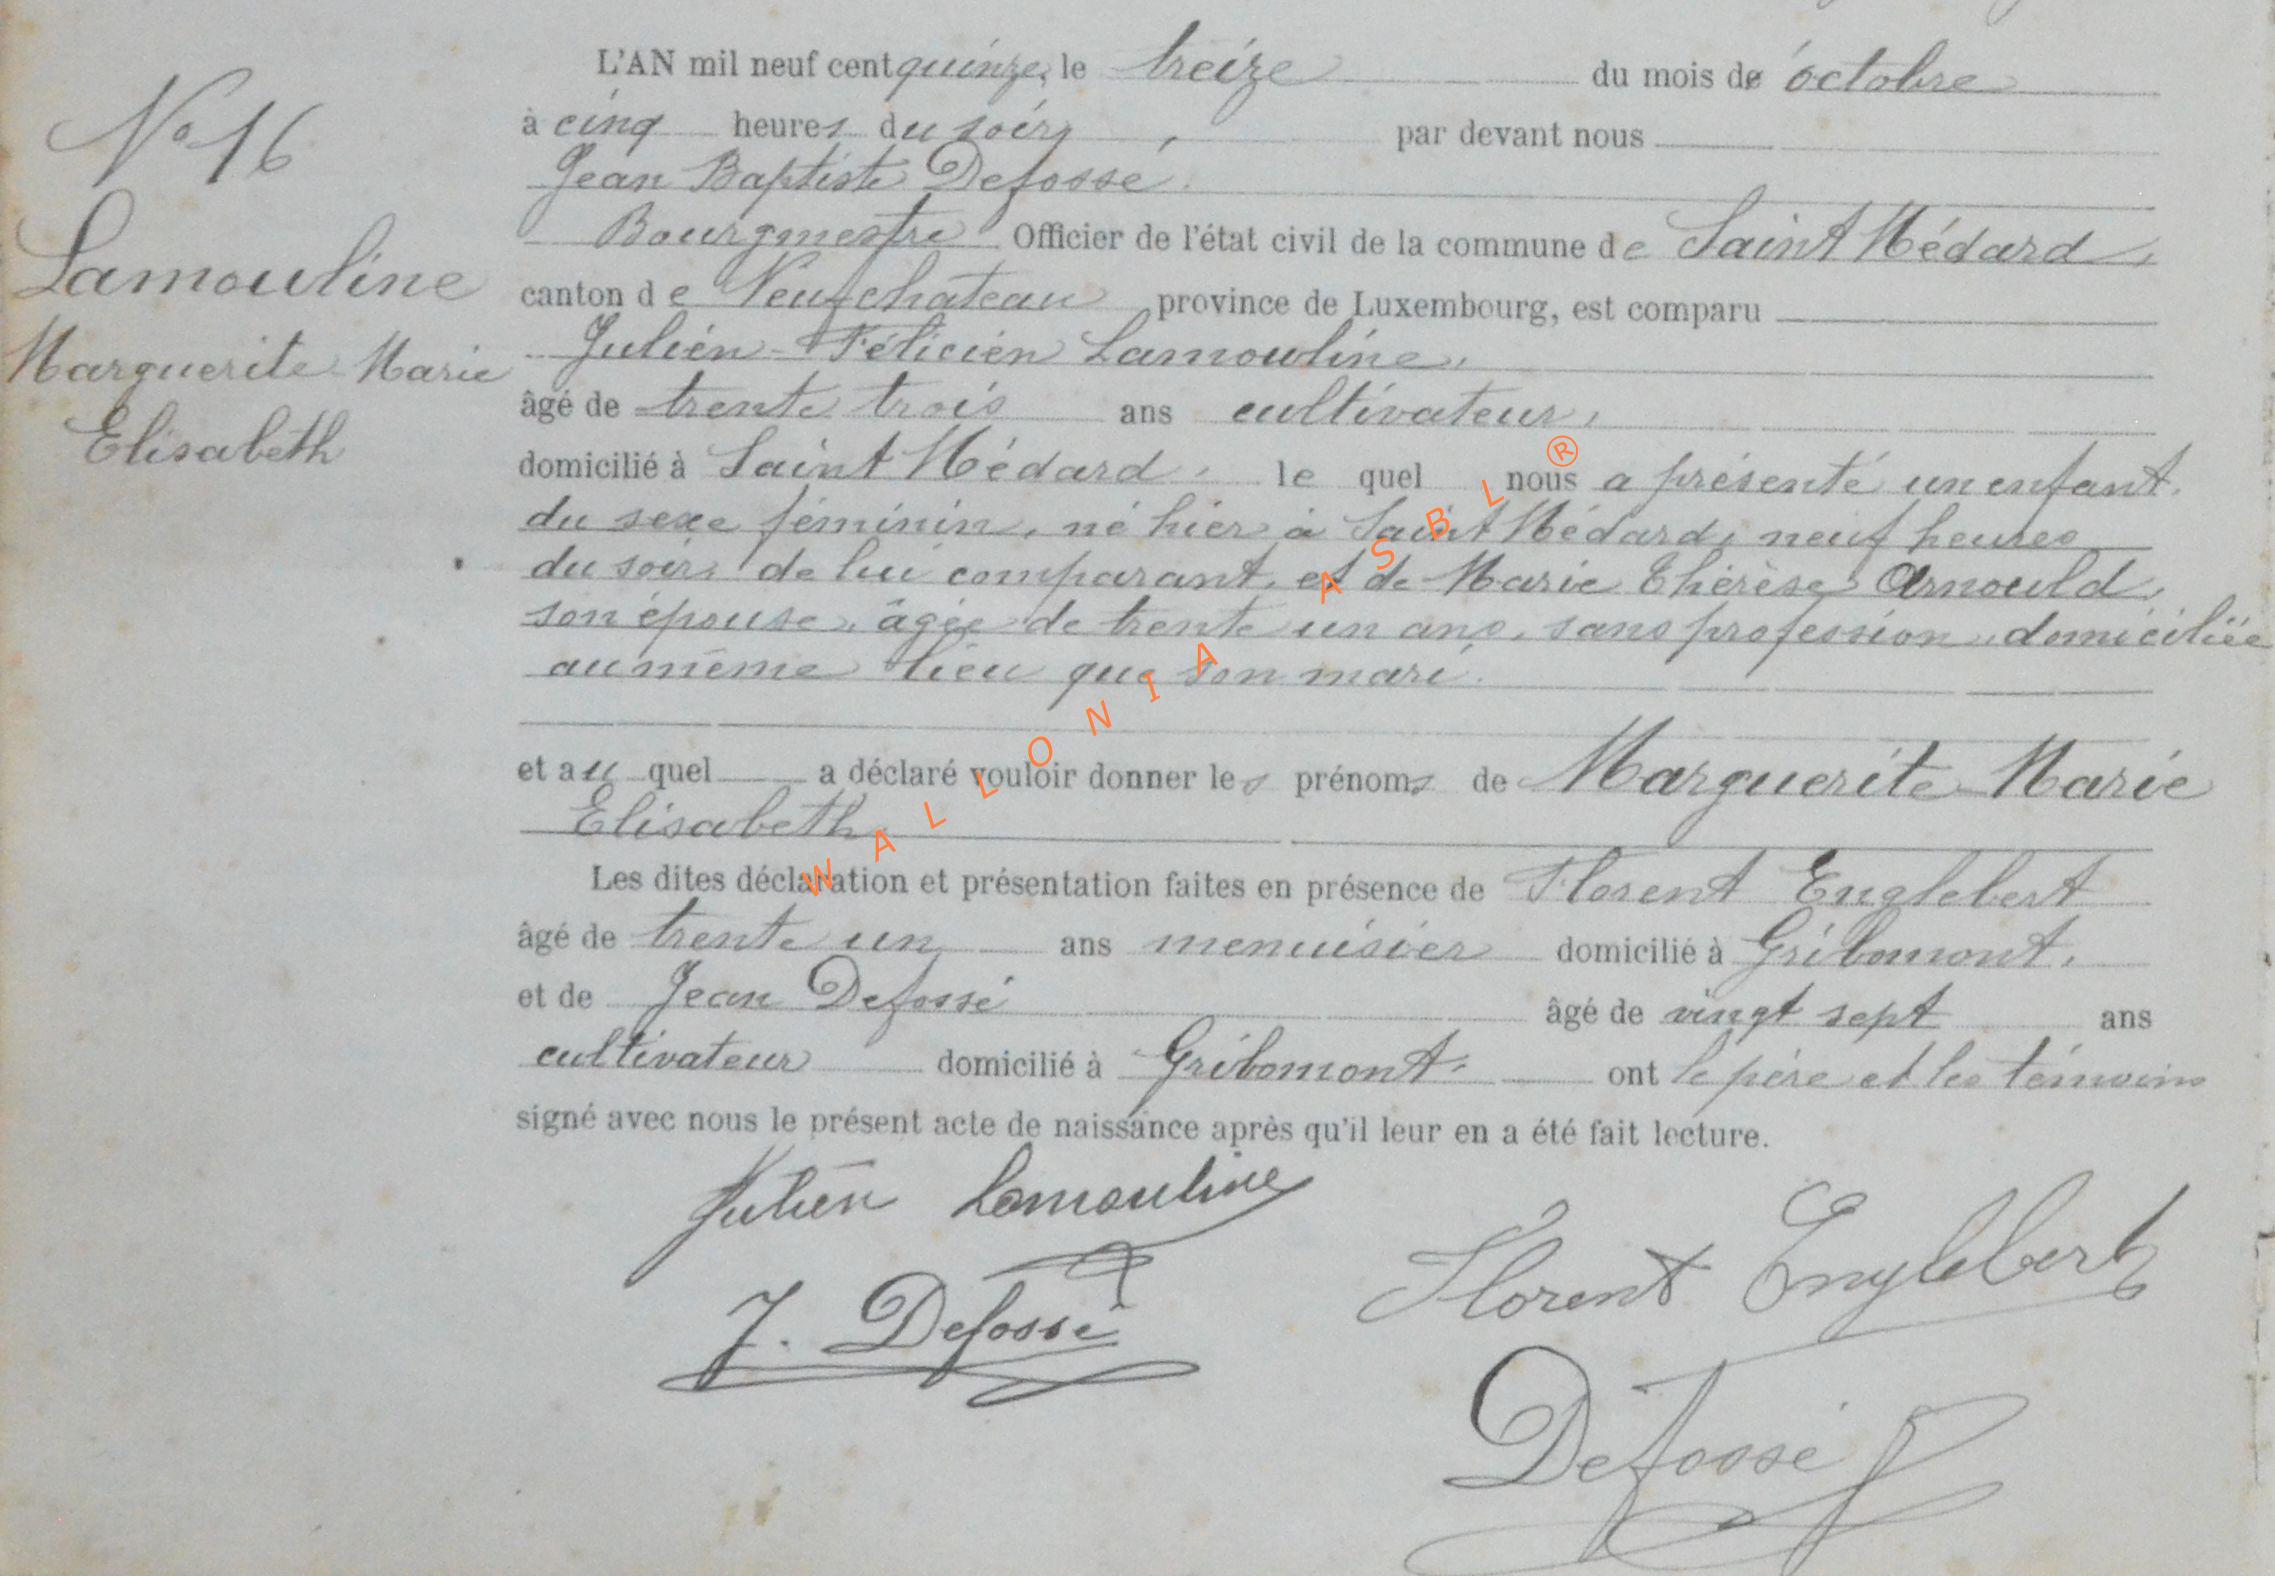 N° 16
Lamouline
Marguerite Marie
Elisabeth
L'AN mil neuf cent quinze, le treize du mois de octobre
à cinq heures du soir, par devant nous
Jean Baptiste Defossé
Bourgmestre Officier de l'état civil de la commune de Saint Médard,
canton de Neufchateau province de Luxembourg, est comparu
Julien Félicien Lamouline,
âgé de trente trois ans cultivateur,
domicilié à Saint Médard, le quel nous a présenté un enfant
du sexe féminin, né hier à Saint Médard, neuf heures
du soir, de lui comparant, et de Marie Thérèse Arnould,
son épouse, âgée de trente un ans, sans profession, domiciliée
au même lieu que son mari.
et au quel a déclaré vouloir donner les prénoms de Marguerite Marie
Elisabeth.
Les dites déclaration et présentation faites en présence de Florent Englebert
âgé de trente un ans menuisier domicilié à Gribomont,
et de Jean Defossé âgé de vingt sept ans
cultivateur domicilié à Gribomont. ont le père et les témoins
signé avec nous le présent acte de naissance après qu'il leur en a été fait lecture.
Julien Lamouline
Florent Englebert
J. Defossé
Defossé
WALLONIA ASBL ®